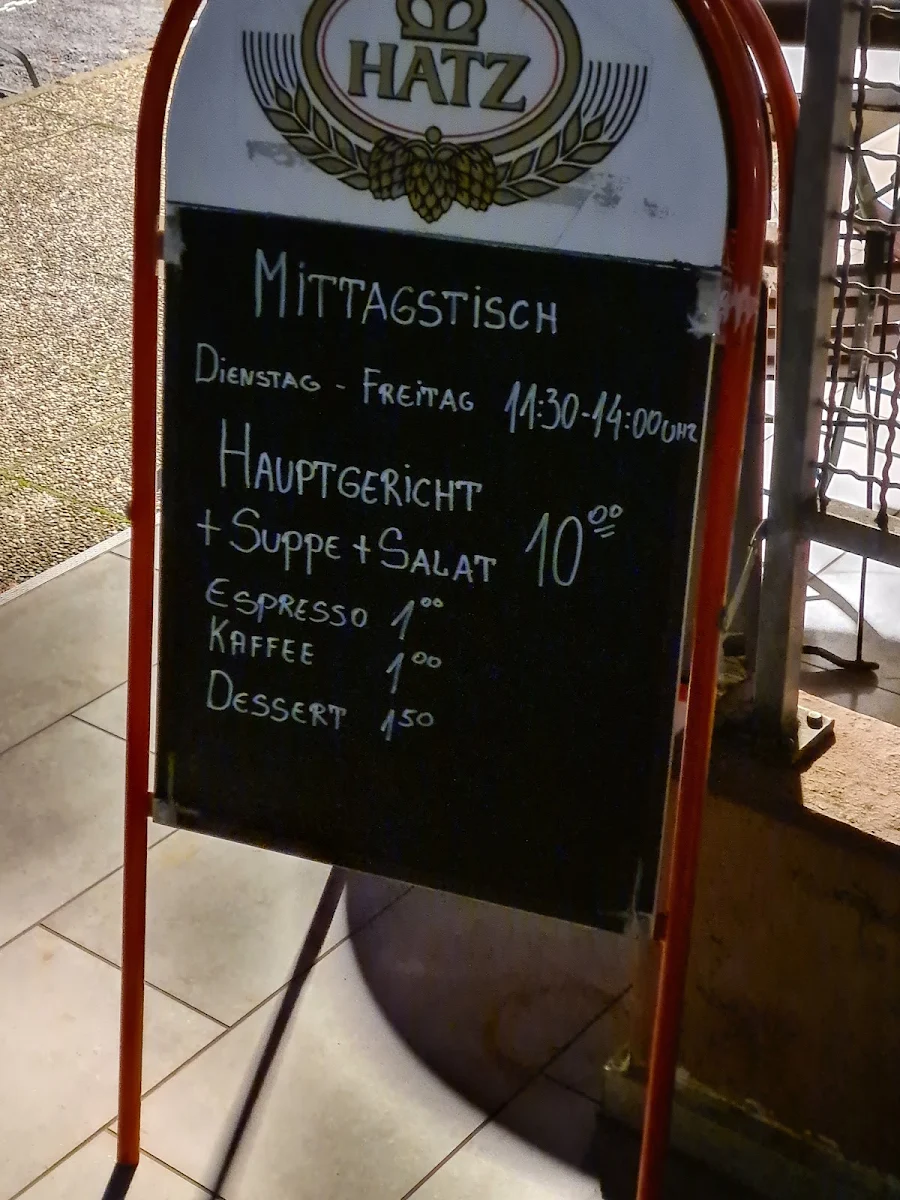 HATZ
MITTAGSTISCH
DIENSTAG - FREITAG 11:30-14:00 UHR
HAUPTGERICHT
+ SUPPE + SALAT 10⁰⁰
ESPRESSO 1⁰⁰
KAFFEE 1⁰⁰
DESSERT 1⁵⁰